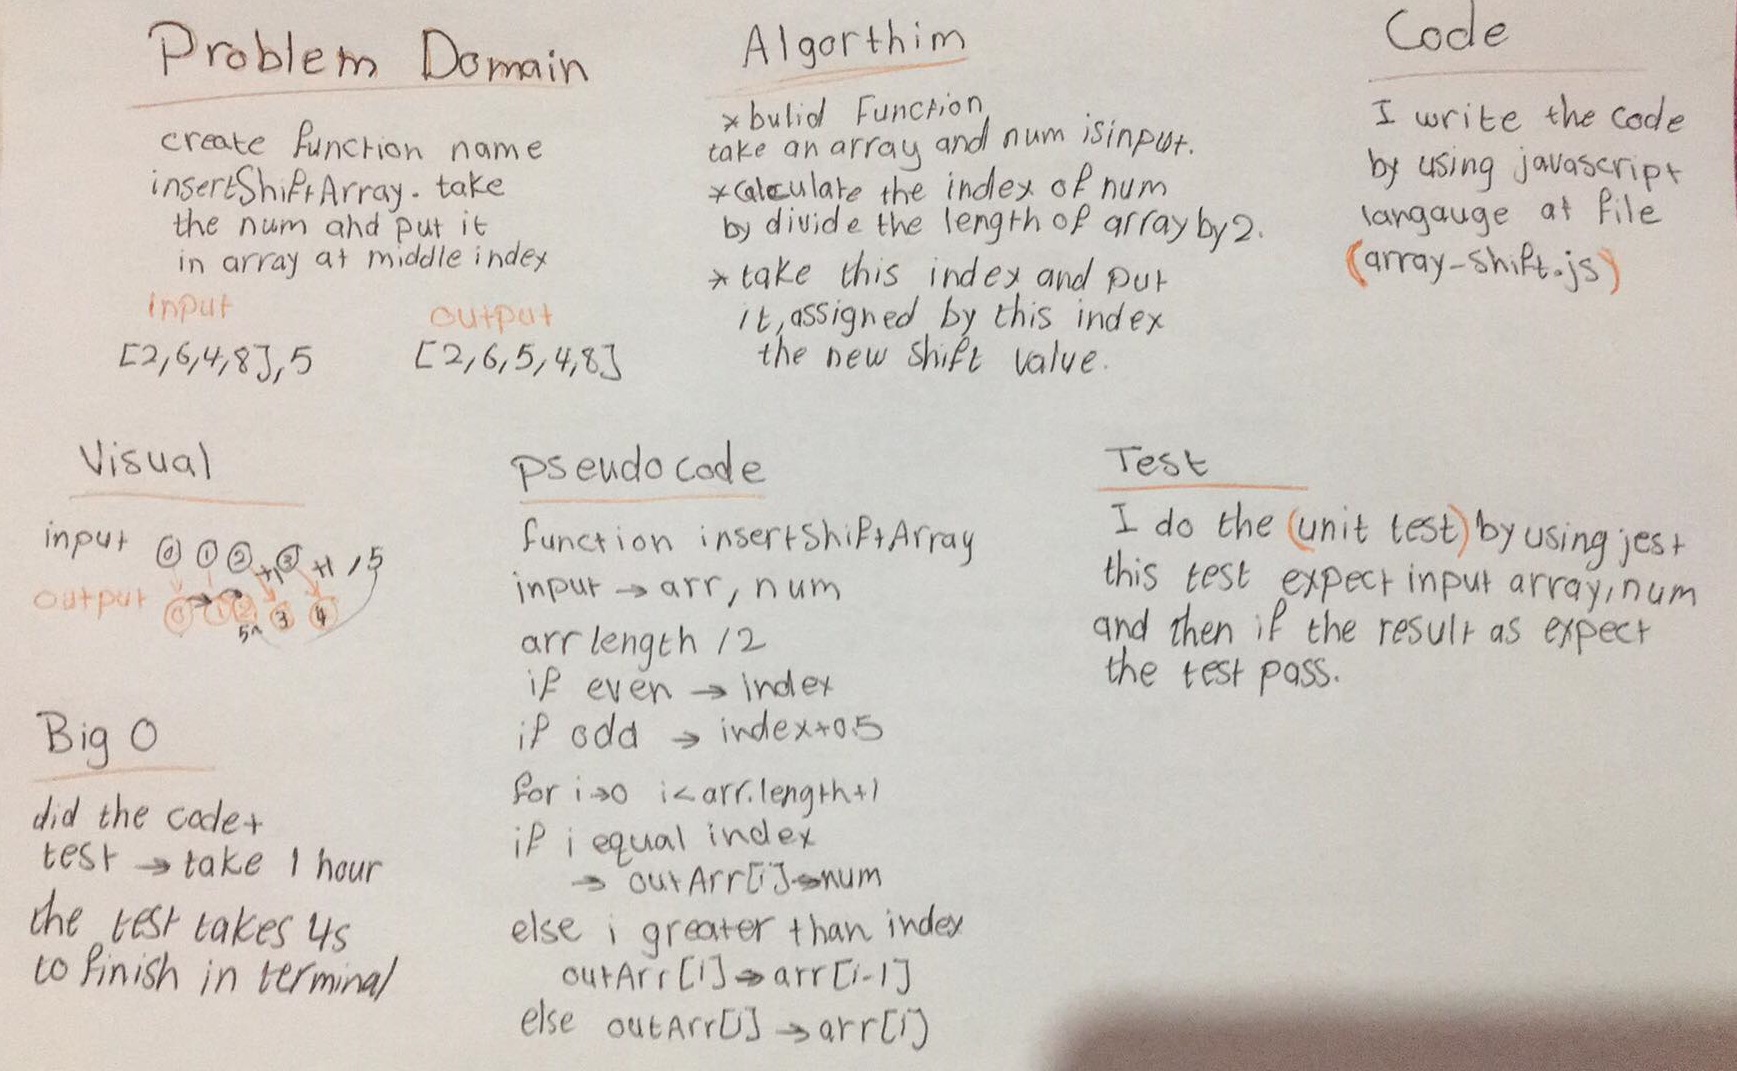 Problem Domain
create function name
insertShiftArray. take
the num and put it
in array at middle index
input
output
[2,6,4,8],5
[2,6,5,4,8]
Algorthim
* bulid Function
take an array and num is input.
* Calculate the index of num
by divide the length of array by 2.
* take this index and put
it, assigned by this index
the new shift value.
Code
I write the code
by using javascript
langauge at file
(array-shift.js)
Visual
input 0 1 2 +1 3 +1 , 5
output 0 → 1 2 3 4
5^
Big O
did the code +
test → take 1 hour
the test takes 4s
to finish in terminal
pseudo code
function insertShiftArray
input → arr, num
arr length / 2
if even → index
if odd → index+0.5
for i→0 i<arr.length+1
if i equal index
→ outArr[i]→num
else i greater than index
outArr[i]→arr[i-1]
else outArr[i] → arr[i]
Test
I do the (unit test) by using jest
this test expect input array, num
and then if the result as expect
the test pass.